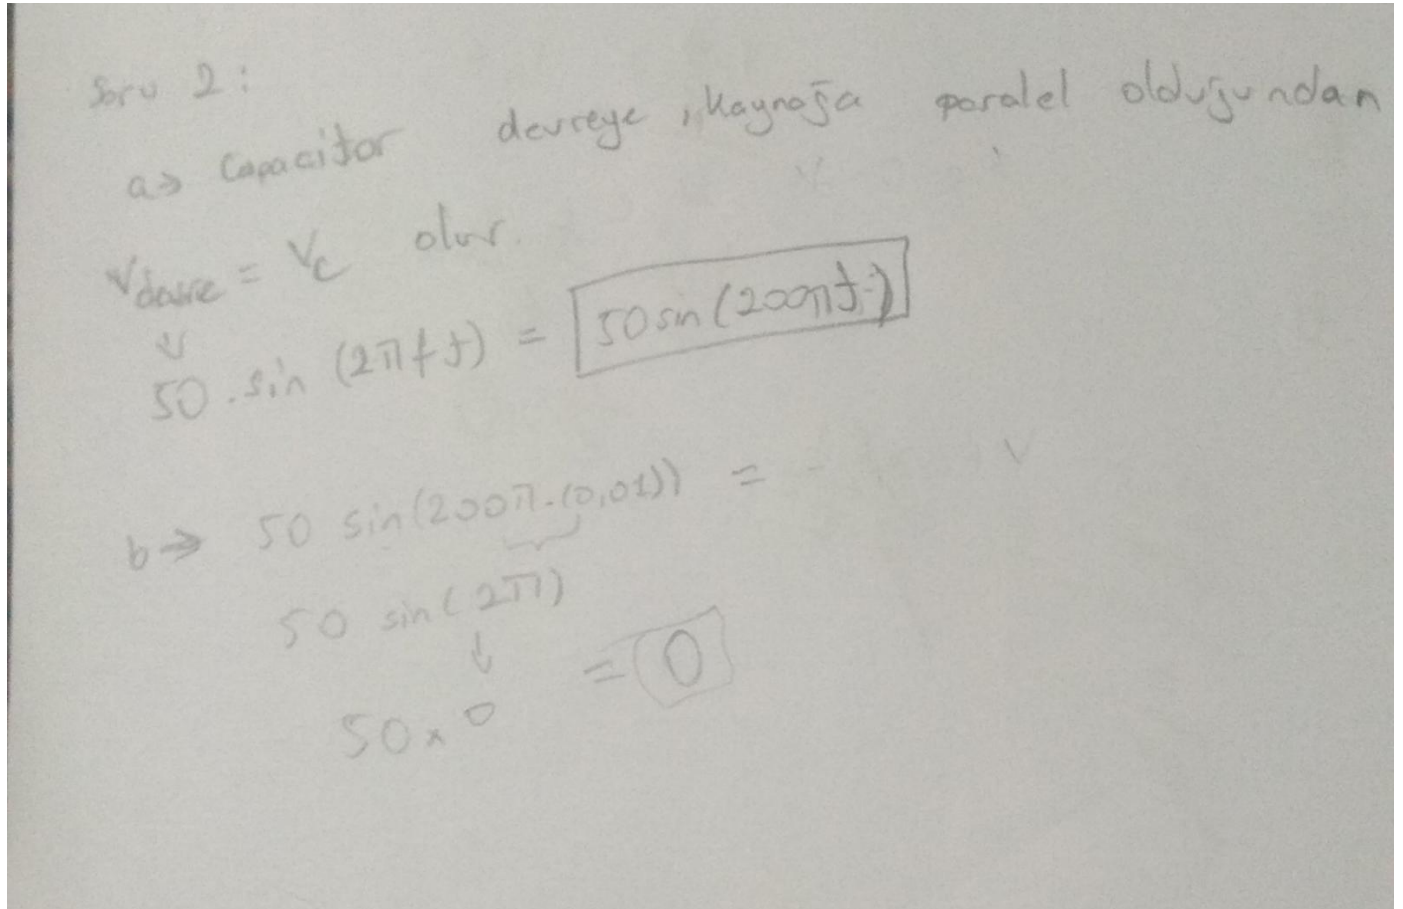 Soru 2:
a→ Capacitor devreye, kaynağa paralel olduğundan
Vdevre = Vc olur.
↓
50.sin (2πft) = 50 sin (200πt)
b→ 50 sin(200π.(0,01)) =
50 sin(2π)
↓
50x0 = 0